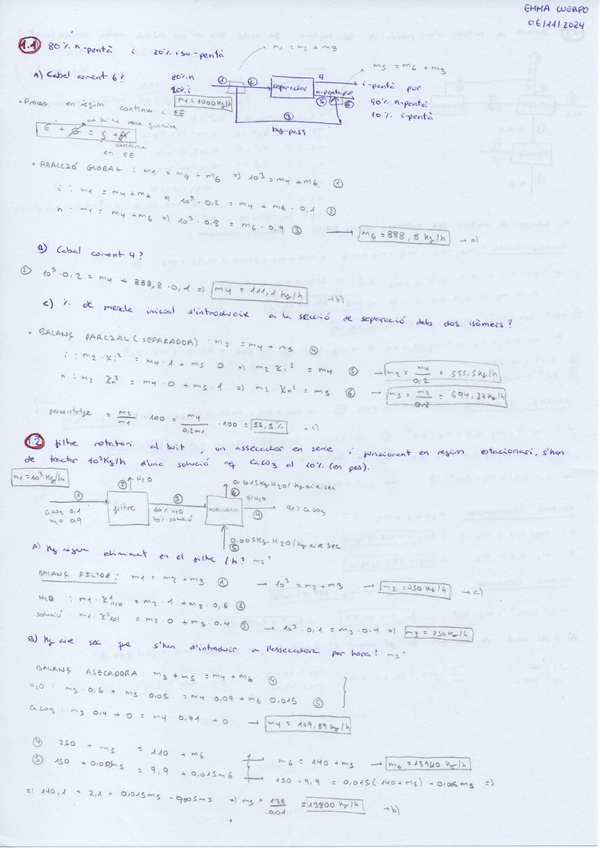 EMMA CUERPO
06/11/2024
1.1 80% n-pentà i 20% iso-pentà
m1 = m2 + m3
m5 = m6 + m3
A) Cabal corrent 6?
80% n
20% i
m1 = 1000 kg/h
separador
i-pentà pur
n-pentà pur
90% n-pentà
10% i-pentà
by-pass
• Procés en règim continu i EE
continu
en EE
• REACCIÓ GLOBAL : m1 = m4 + m6 => 10³ = m4 + m6 ①
i : m1 = m4 + m6 => 10³ · 0,2 = m4 + m6 · 0,1 ②
n : m1 = m4 + m6 => 10³ · 0,8 = m6 · 0,9 ③ → m6 = 888,8 kg/h → a)
B) Cabal corrent 4?
② 10³ · 0,2 = m4 + 888,8 · 0,1 => m4 = 111,1 kg/h → b)
C) % de mescla inicial s'introdueix a la secció de separació dels dos isòmers?
• BALANÇ PARCIAL (SEPARADOR) : m2 = m4 + m5 ④
i : m2 · xi² = m4 · 1 + m5 · 0 => m2 xi² = m4 ⑤ → m2 = m4/0,2 = 555,5 kg/h
n : m2 xn² = m4 · 0 + m5 · 1 => m2 xn² = m5 ⑥
percentatge = m2/m1 · 100 = m4/0,2m1 · 100 = 55,5% → c)
1.2 filtre rotatori al buit, un assecador en sèrie i funcionant en règim estacionari, s'han
de tractar 10³ kg/h d'una solució aq CaCO3 al 10% (en pes).
m1 = 10³ kg/h
H2O
0.015 kg H2O / kg aire sec
CaCO3 0.1
H2O 0.9
filtre
60% H2O
40% solució
9% H2O
91% CaCO3
0.005 kg H2O / kg aire sec
A) kg aigua eliminat en el filtre / h? m2?
BALANÇ FILTRE : m1 = m2 + m3 ① → 10³ = m2 + m3 → m2 = 750 kg/h → a)
H2O : m1 · x¹H2O = m2 · 1 + m3 · 0,6 ②
solució : m1 = m2 · 0 + m3 0.4 ③ → 10³ 0,1 = m3 · 0.4 => m3 = 250 kg/h
B) kg aire sec que s'han d'introduir a l'assecadora per hora? m5?
BALANÇ ASECADORA : m3 + m5 = m4 + m6 ④
H2O : m3 · 0,6 + m5 0,05 = m4 0,09 + m6 · 0,015 ⑤
CaCO3 : m3 · 0.4 + 0 = m4 · 0.91 + 0 → m4 = 109,89 kg/h
④ 250 + m5 = 110 + m6
m6 = 140 + m5 → m6 = 13940 kg/h
⑤ 150 + 0,005m5 = 9,9 + 0,015m6
150 - 9,9 = 0,015(140 + m5) - 0,005m5 =>
=> 140,1 = 2,1 + 0,015m5 - 0,005m5 => m5 = 138/0,01 = 13800 kg/h → b)